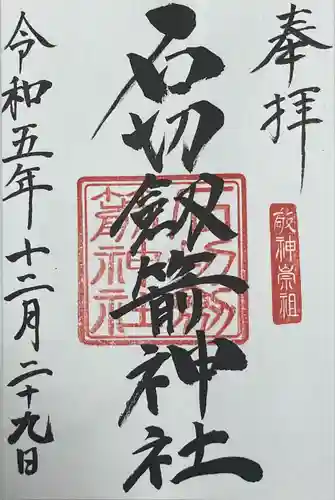 奉拝
敬神崇祖
石切劔箭神社
石切劔箭神社
令和五年十二月二十九日